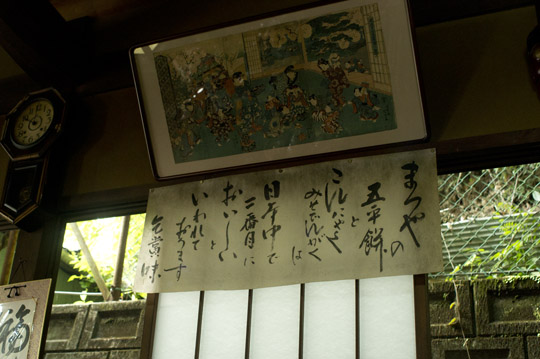 まつやの
五平餅
と
こんにゃく
みそでんがく
は
日本中で
二番目に
おいしい
と
いわれて
おります
ご賞味
福